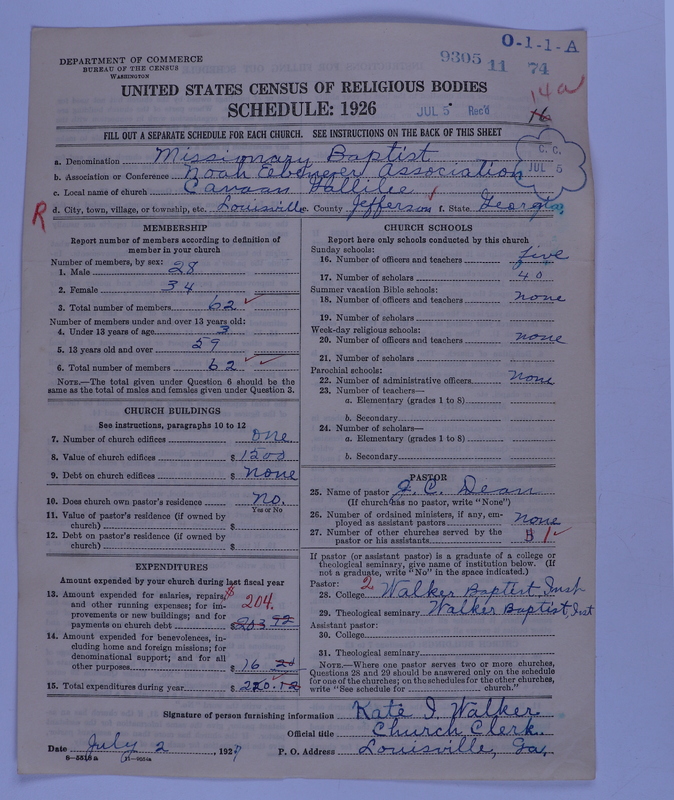 O-1-1-A
DEPARTMENT OF COMMERCE
BUREAU OF THE CENSUS
WASHINGTON
9305 11 74
14a
UNITED STATES CENSUS OF RELIGIOUS BODIES
SCHEDULE: 1926
JUL 5 Rec'd
16
FILL OUT A SEPARATE SCHEDULE FOR EACH CHURCH. SEE INSTRUCTIONS ON THE BACK OF THIS SHEET
C. C.
JUL 5
a. Denomination Missionary Baptist
b. Association or Conference Noah Ebenezer Association
c. Local name of church Canaan Gallilee
R
d. City, town, village, or township, etc. Louisville e. County Jefferson f. State Georgia
MEMBERSHIP
Report number of members according to definition of
member in your church
Number of members, by sex:
1. Male 28
2. Female 34
3. Total number of members 62
Number of members under and over 13 years old:
4. Under 13 years of age 3
5. 13 years old and over 59
6. Total number of members 62
NOTE.—The total given under Question 6 should be the
same as the total of males and females given under Question 3.
CHURCH BUILDINGS
See instructions, paragraphs 10 to 12
7. Number of church edifices One
8. Value of church edifices $1200
9. Debt on church edifices $ none
10. Does church own pastor's residence No.
Yes or No
11. Value of pastor's residence (if owned by
church) $
12. Debt on pastor's residence (if owned by
church) $
EXPENDITURES
Amount expended by your church during last fiscal year
13. Amount expended for salaries, repairs, $
and other running expenses; for im- 204.
provements or new buildings; and for
payments on church debt $203 92
14. Amount expended for benevolences, in-
cluding home and foreign missions; for
denominational support; and for all
other purposes $16 20
15. Total expenditures during year $220.12
CHURCH SCHOOLS
Report here only schools conducted by this church
Sunday schools:
16. Number of officers and teachers five
17. Number of scholars 40
Summer vacation Bible schools:
18. Number of officers and teachers none
19. Number of scholars
Week-day religious schools:
20. Number of officers and teachers none
21. Number of scholars
Parochial schools:
22. Number of administrative officers none
23. Number of teachers—
a. Elementary (grades 1 to 8)
b. Secondary
24. Number of scholars—
a. Elementary (grades 1 to 8)
b. Secondary
PASTOR
25. Name of pastor J. C. Dean
(If church has no pastor, write "None")
26. Number of ordained ministers, if any, em-
ployed as assistant pastors none
27. Number of other churches served by the
pastor or his assistants 1
If pastor (or assistant pastor) is a graduate of a college or
theological seminary, give name of institution below. (If
not a graduate, write "No" in the space indicated.)
Pastor: 2
28. College Walker Baptist Inst
29. Theological seminary Walker Baptist Inst
Assistant pastor:
30. College
31. Theological seminary
NOTE.—Where one pastor serves two or more churches,
Questions 28 and 29 should be answered only on the schedule
for one of the churches; on the schedules for the other churches,
write "See schedule for church."
Signature of person furnishing information Kate I. Walker
Official title Church Clerk.
Date July 2, 1927 P. O. Address Louisville, Ga,
8—5518a 11—9054a